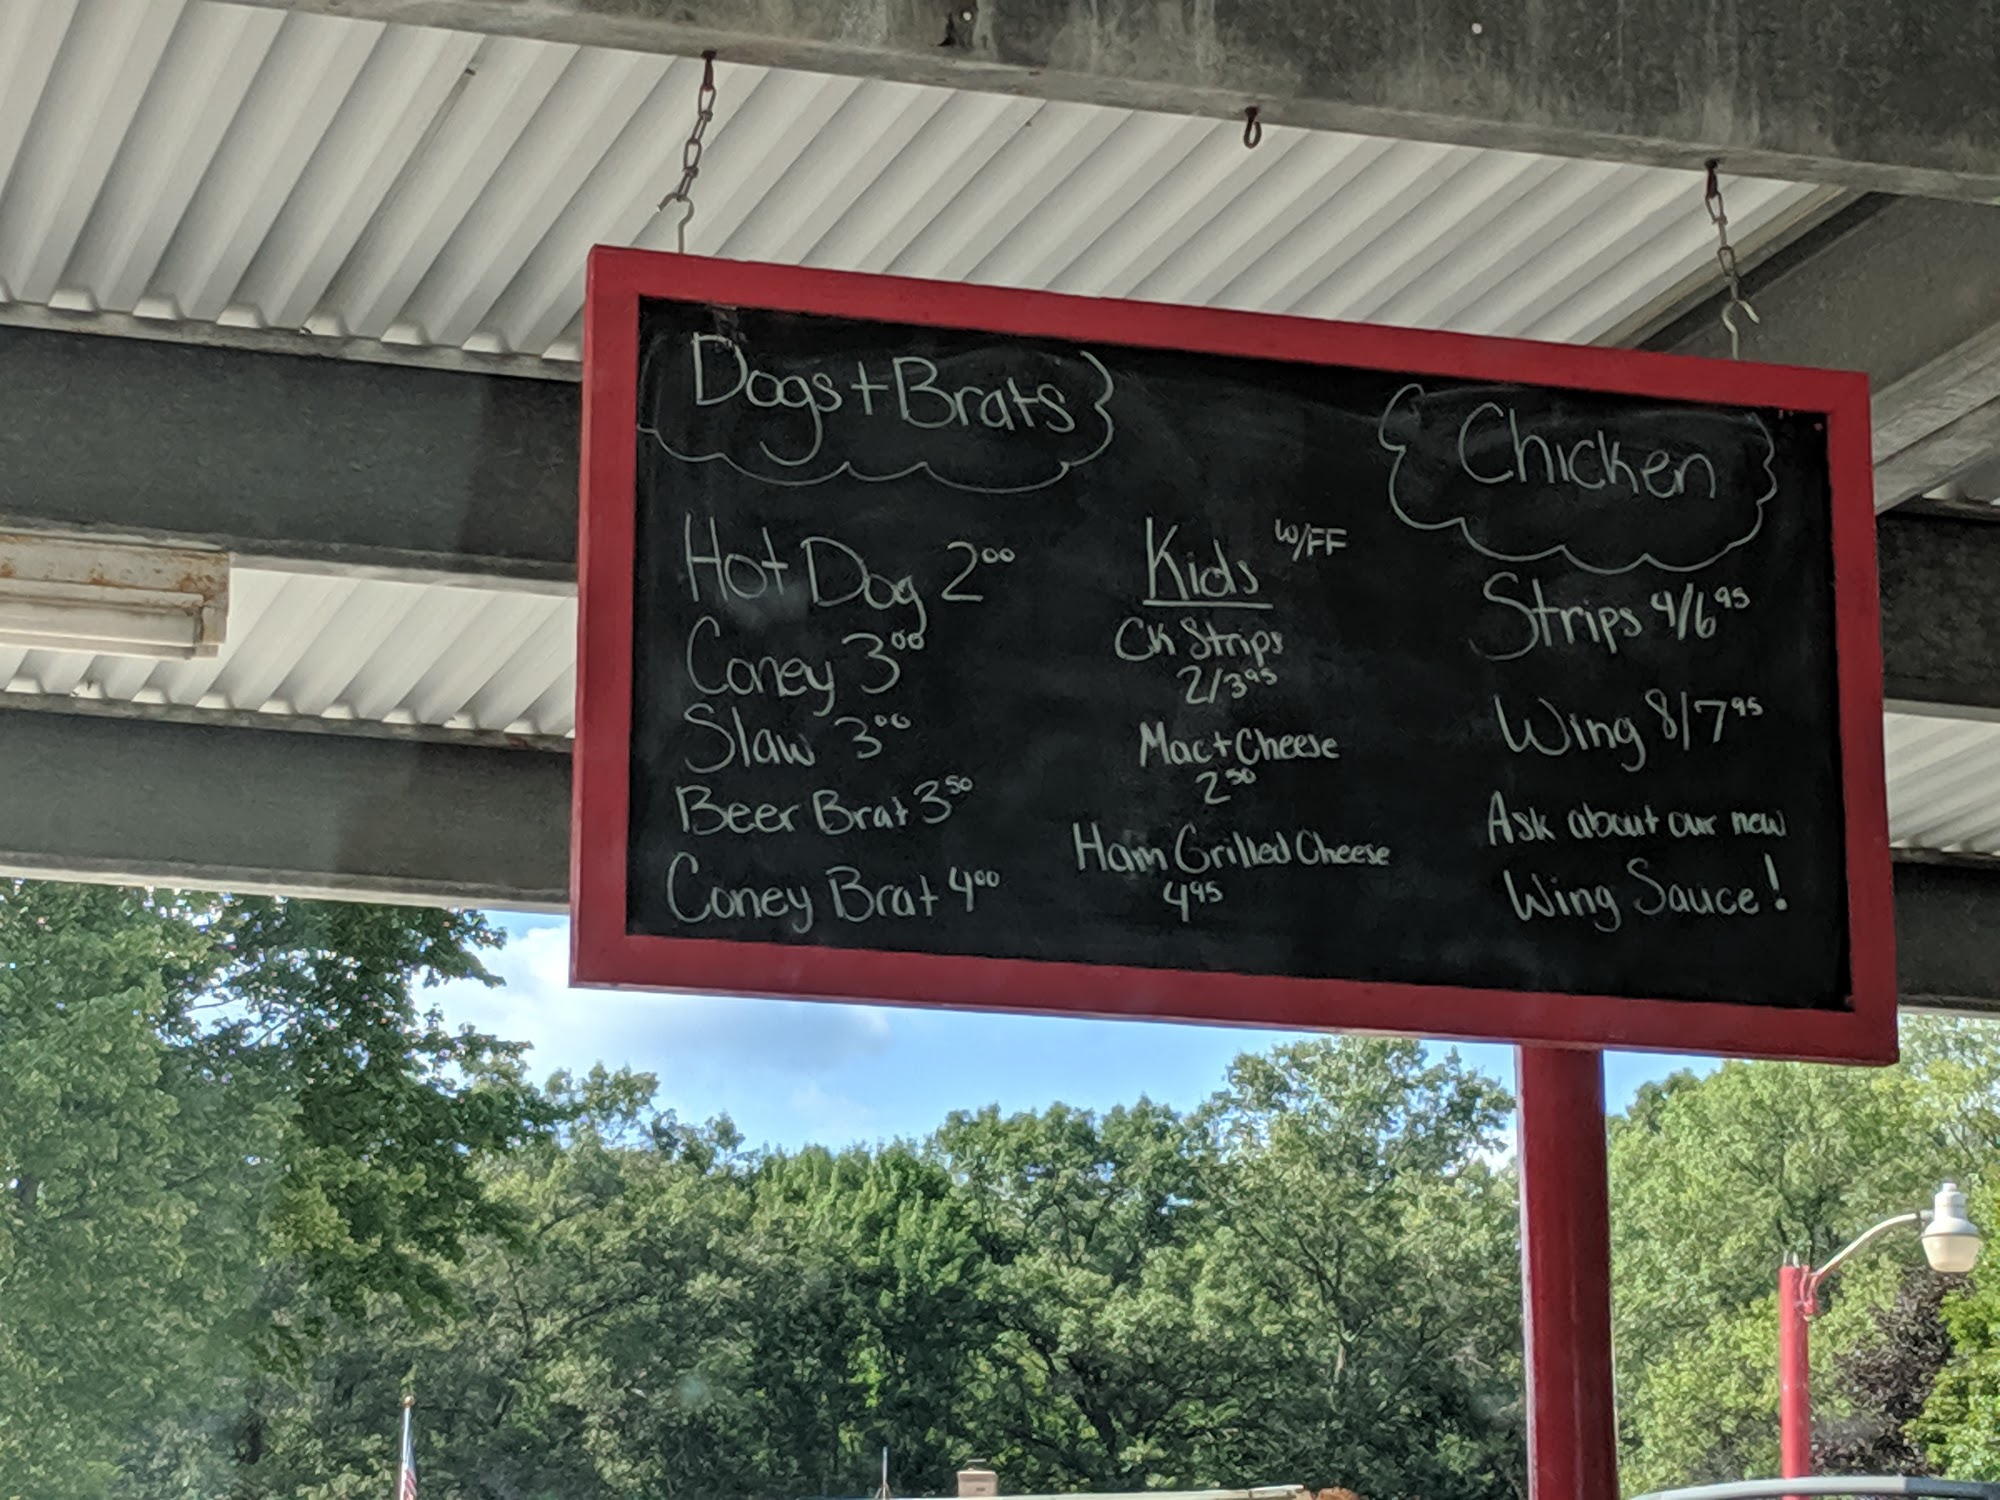 Dogs + Brats
Hot Dog 2⁰⁰
Coney 3⁰⁰
Slaw 3⁰⁰
Beer Brat 3⁵⁰
Coney Brat 4⁰⁰
Kids w/FF
Ck Strips
2/3⁹⁵
Mac + Cheese
2⁵⁰
Ham Grilled Cheese
4⁹⁵
Chicken
Strips 4/6⁹⁵
Wing 8/7⁹⁵
Ask about our new
Wing Sauce!